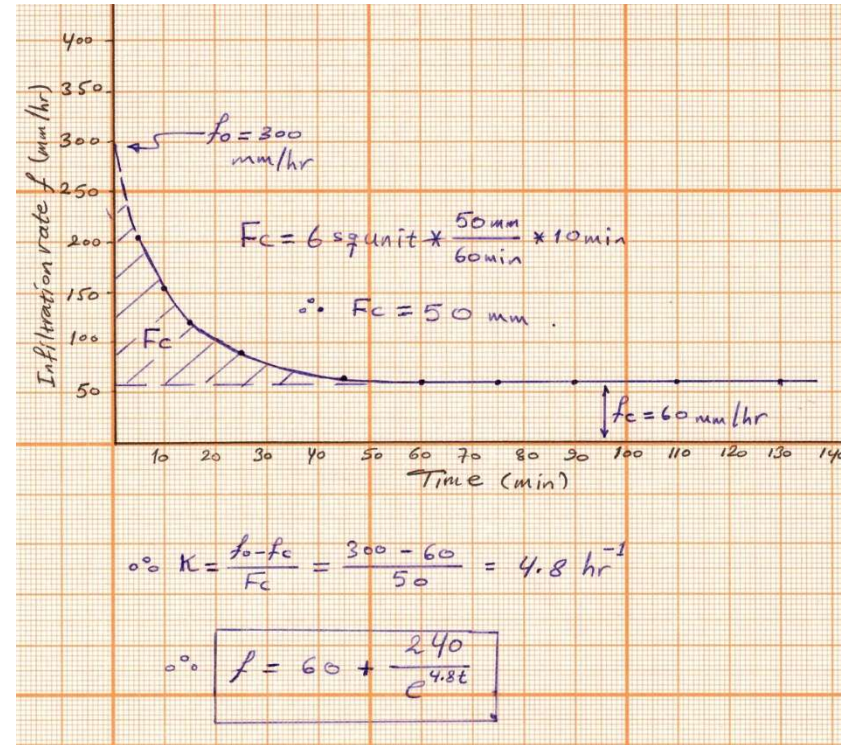 400
350
300
250
200
150
100
50
Infiltration rate f (mm/hr)
f₀ = 300
mm/hr
Fc = 6 sq unit * 50 mm / 60 min * 10 min
∴ Fc = 50 mm .
Fc
fc = 60 mm/hr
10 20 30 40 50 60 70 80 90 100 110 120 130 140
Time (min)
∴ K = f₀-fc / Fc = 300 - 60 / 50 = 4.8 hr⁻¹
∴ f = 60 + 240 / e^4.8t